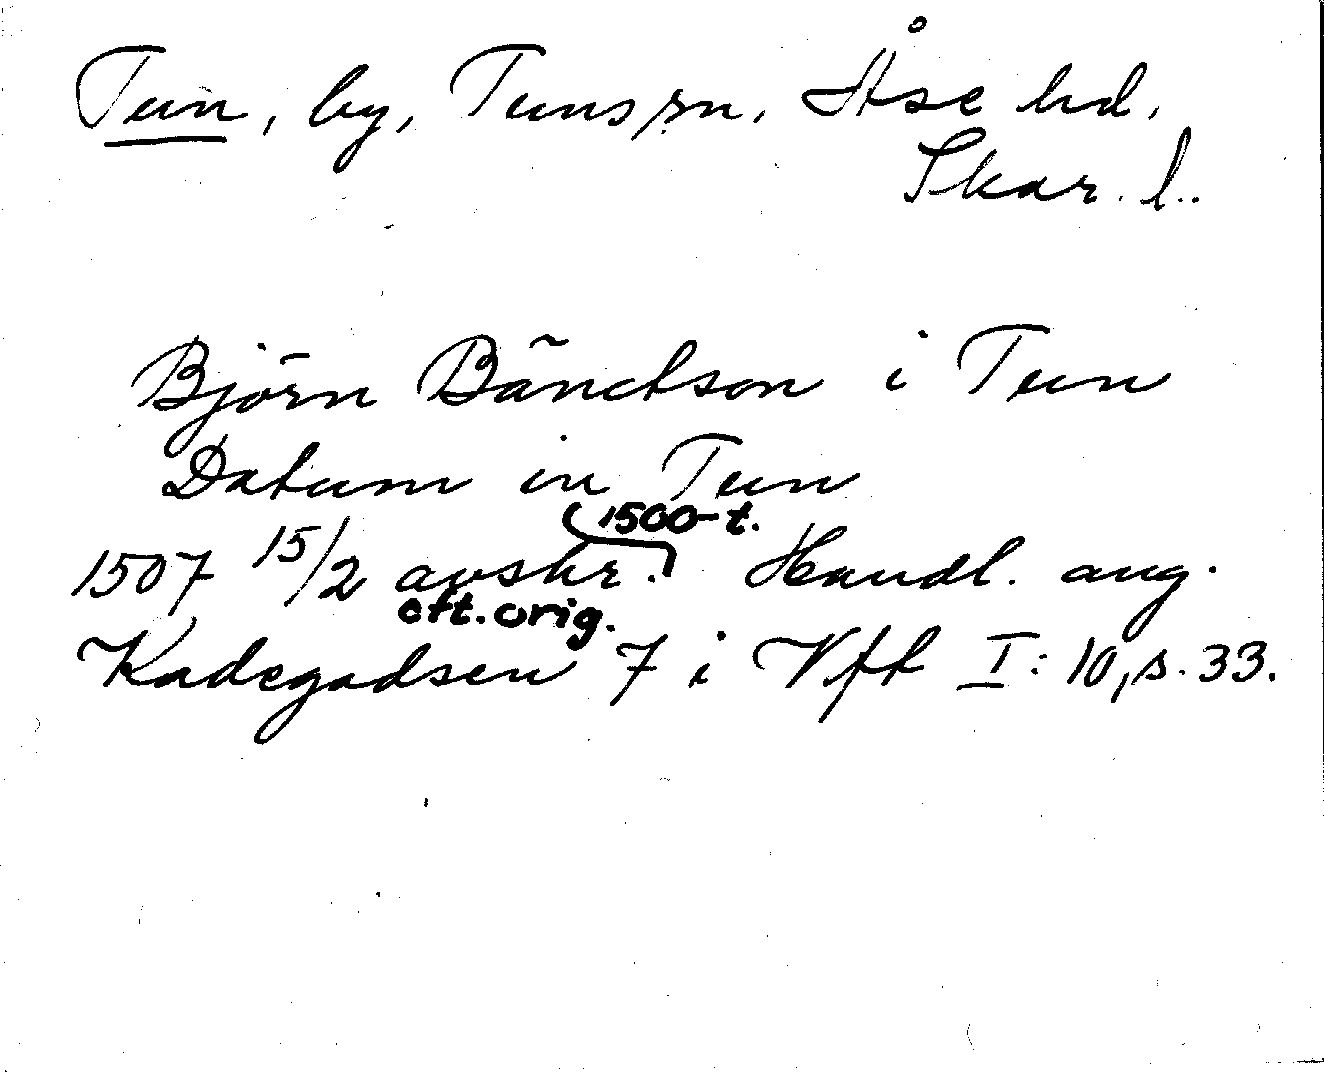 Tun, by, Tuns sn, Åse hd,
Skar. l.
Björn Bänctson i Tun
Datum in Tun
1500-t.
1507 15/2 avskr. Handl. ang.
eft. orig.
Kadegadsen 7 i Vft I: 10, s. 33.